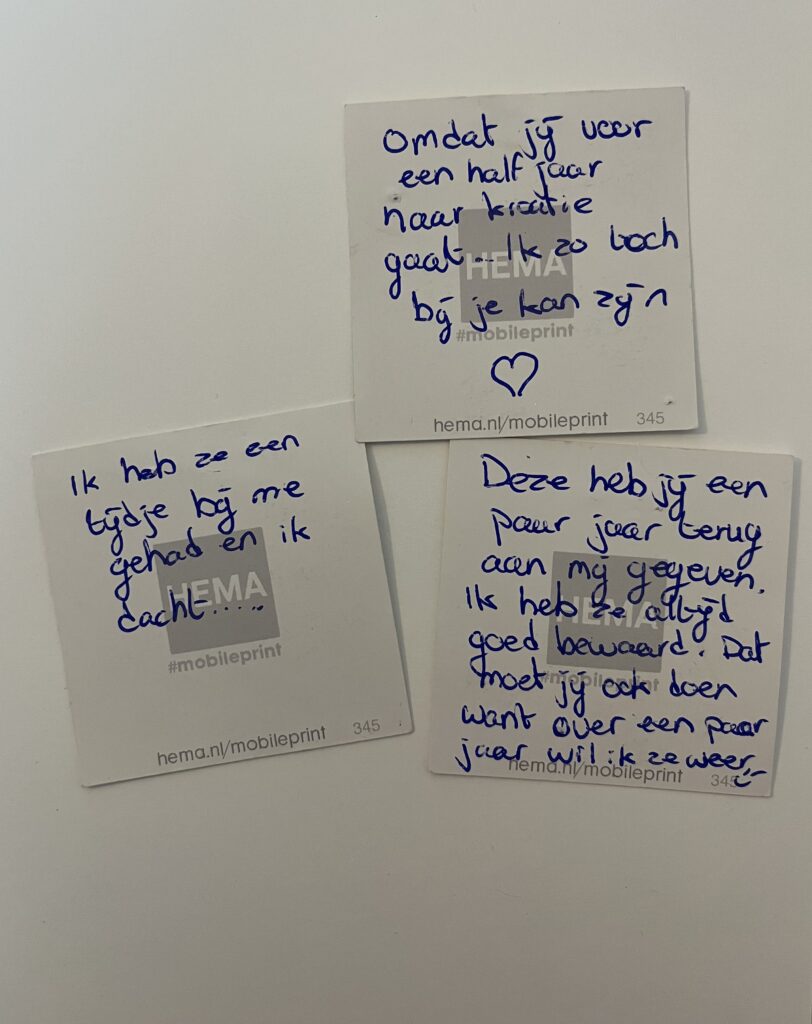 Omdat jij voor
een half jaar
naar kroatie
gaat... Ik zo toch
bij je kan zijn
HEMA
#mobileprint
hema.nl/mobileprint 345
Ik heb ze een
tijdje bij me
gehad en ik
dacht.....
HEMA
#mobileprint
hema.nl/mobileprint 345
Deze heb jij een
paar jaar terug
aan mij gegeven.
Ik heb ze altijd
goed bewaard. Dat
moet jij ook doen
want over een paar
jaar wil ik ze weer
HEMA
#mobileprint
hema.nl/mobileprint 345